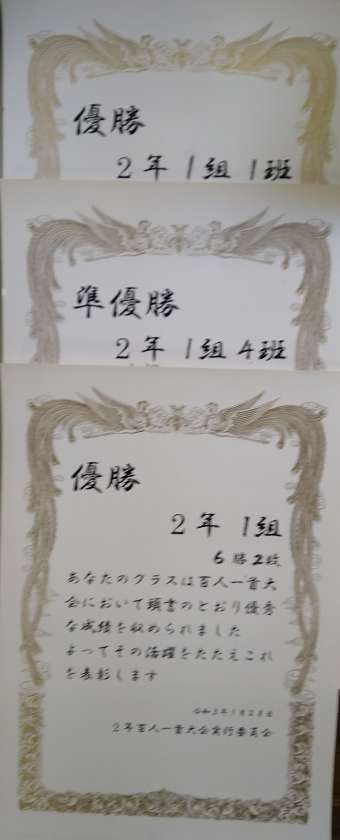 優勝
2年 1組 1班
準優勝
2年 1組 4班
優勝
2年 1組
6勝2敗
あなたのクラスは百人一首大
会において頭書のとおり優秀
な成績を収められました
よってその活躍をたたえこれ
を表彰します
令和3年1月28日
2年百人一首大会実行委員会